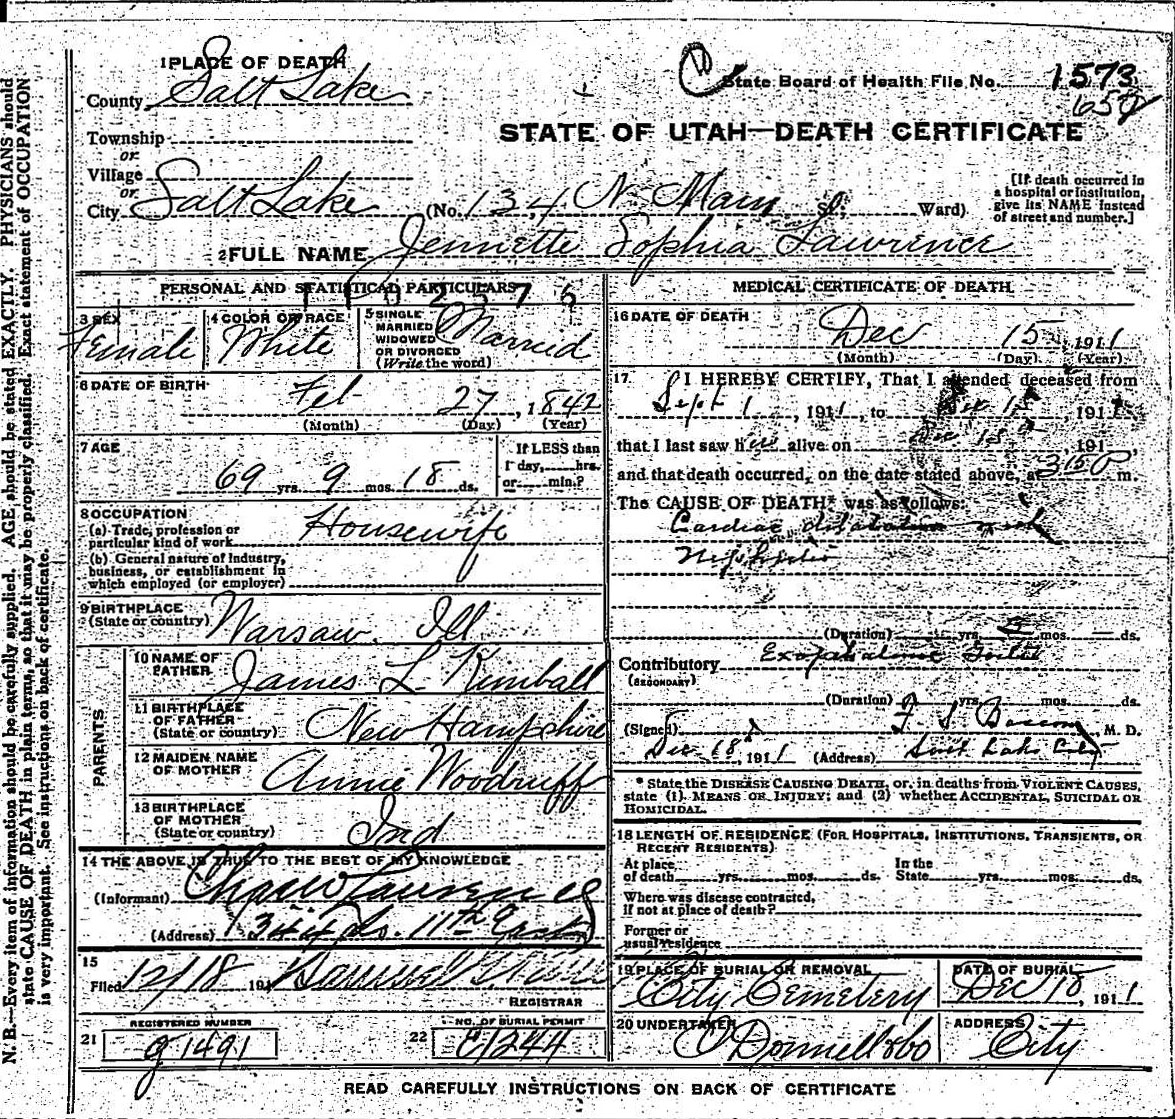 N. B.—Every item of information should be carefully supplied. AGE should be stated EXACTLY. PHYSICIANS should
state CAUSE OF DEATH in plain terms, so that it may be properly classified. Exact statement of OCCUPATION
is very important. See instructions on back of certificate.
1 PLACE OF DEATH
County Salt Lake
Township
or
Village
or
City Salt Lake
State Board of Health File No. 1573
STATE OF UTAH—DEATH CERTIFICATE
(No. 134 N Main St., Ward)
[If death occurred in
a hospital or institution,
give its NAME instead
of street and number.]
2 FULL NAME Jennette Sophia Lawrence
PERSONAL AND STATISTICAL PARTICULARS
3 SEX Female
4 COLOR OR RACE White
5 SINGLE
MARRIED
WIDOWED
OR DIVORCED
(Write the word) Married
6 DATE OF BIRTH Feb 27, 1842
(Month) (Day) (Year)
7 AGE
69 yrs. 9 mos. 18 ds.
If LESS than
1 day, hrs.
or min.?
8 OCCUPATION
(a) Trade, profession or
particular kind of work Housewife
(b) General nature of industry,
business, or establishment in
which employed (or employer)
9 BIRTHPLACE
(State or country) Warsaw. Ill
PARENTS
10 NAME OF
FATHER James L Kimball
11 BIRTHPLACE
OF FATHER
(State or country) New Hampshire
12 MAIDEN NAME
OF MOTHER Annie Woodruff
13 BIRTHPLACE
OF MOTHER
(State or country) Ind
14 THE ABOVE IS TRUE TO THE BEST OF MY KNOWLEDGE
(Informant) Lawrence
(Address) So. 11th East
15
Filed 12/18 191
REGISTRAR
REGISTERED NUMBER
21 g1491
NO. OF BURIAL PERMIT
22 E1244
MEDICAL CERTIFICATE OF DEATH
16 DATE OF DEATH
Dec 15, 1911
(Month) (Day) (Year)
17 I HEREBY CERTIFY, That I attended deceased from
Sept 1, 1911, to Dec 15, 191
that I last saw her alive on Dec 15, 191
and that death occurred, on the date stated above, at 315 P m.
The CAUSE OF DEATH* was as follows:
Cardiac dilatation
Nephritis
(Duration) yrs. mos. ds.
Contributory Exophthalmic Goitre
(SECONDARY)
(Duration) yrs. mos. ds.
(Signed) M. D.
Dec 18, 1911 (Address) Salt Lake City
* State the DISEASE CAUSING DEATH, or, in deaths from VIOLENT CAUSES,
state (1) MEANS OF INJURY; and (2) whether ACCIDENTAL, SUICIDAL OR
HOMICIDAL.
18 LENGTH OF RESIDENCE (FOR HOSPITALS, INSTITUTIONS, TRANSIENTS, OR
RECENT RESIDENTS)
At place
of death yrs. mos. ds.
In the
State yrs. mos. ds.
Where was disease contracted,
if not at place of death?
Former or
usual residence
19 PLACE OF BURIAL OR REMOVAL
City Cemetery
DATE OF BURIAL
Dec 18, 1911
20 UNDERTAKER
O'Donnell & Co
ADDRESS
City
READ CAREFULLY INSTRUCTIONS ON BACK OF CERTIFICATE